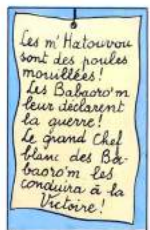 Les m'Hatouvou
sont des poules
mouillées !
Les Babaoro'm
leur déclarent
la guerre !
Le grand Chef
blanc des Ba-
baoro'm les
conduira à la
Victoire !